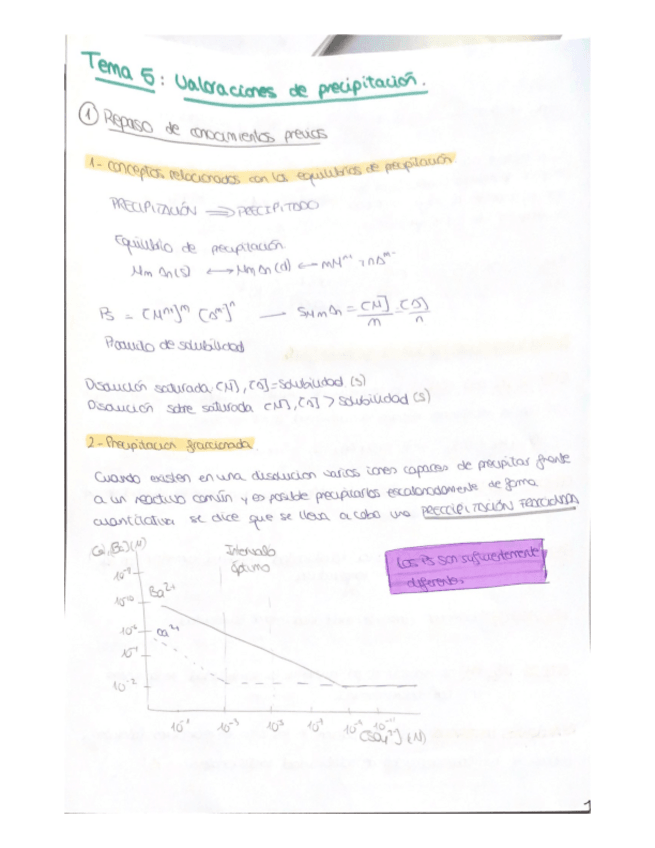 Tema 5: Valoraciones de precipitación.
① Repaso de conocimientos previos
1- conceptos relacionados con los equilibrios de precipitación
PRECIPITACIÓN ⟹ PRECIPITADO
Equilibrio de precipitación
MmAn(s) ⟷ MmAn(d) ⟷ mMⁿ⁺ + nAᵐ⁻
Ps = [Mⁿ⁺]ᵐ [Aᵐ⁻]ⁿ — SMmAn = [M]/m = [A]/n
Producto de solubilidad
Disolución saturada [M], [A] = Solubilidad (s)
Disolución sobre saturada [M], [A] > Solubilidad (s)
2- Precipitacion fraccionada
Cuando existen en una disolucion varios iones capaces de precipitar frente
a un reactivo común y es posible precipitarlos escalonadamente de forma
cuantitativa se dice que se lleva a cabo una PRECIPITACIÓN FRACCIONADA
Intervalo
óptimo
Los Ps son suficientemente
diferentes.
Ba²⁺
10⁻¹⁰
10⁻⁶
Ca²⁺
10⁻²
10⁻³
[SO₄²⁻] (M)
1